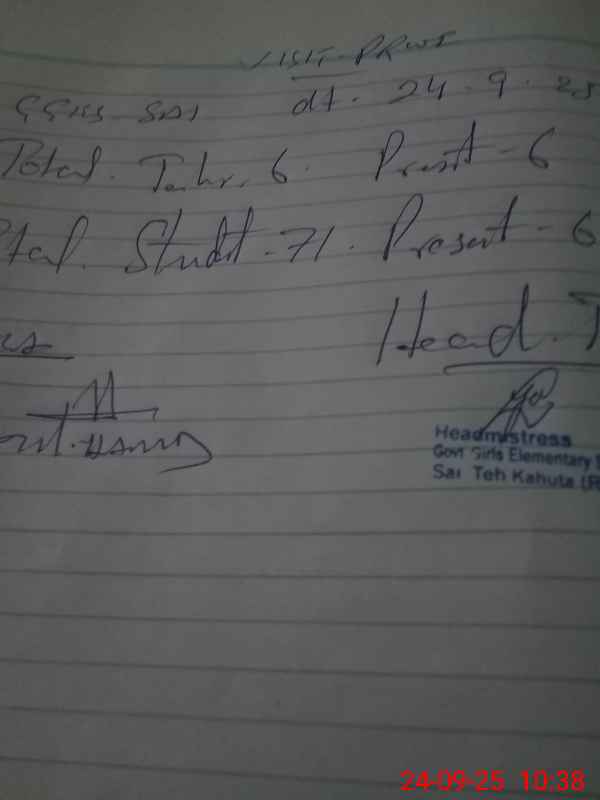 VISIT PROOF
GGHS SAI dt. 24.9.25
Total. Teachr. 6. Present - 6
tal. Studt - 71. Present - 6
Head. T
Headmistress
Govt Girls Elementary S
Sai Teh Kahuta (R
24-09-25 10:38